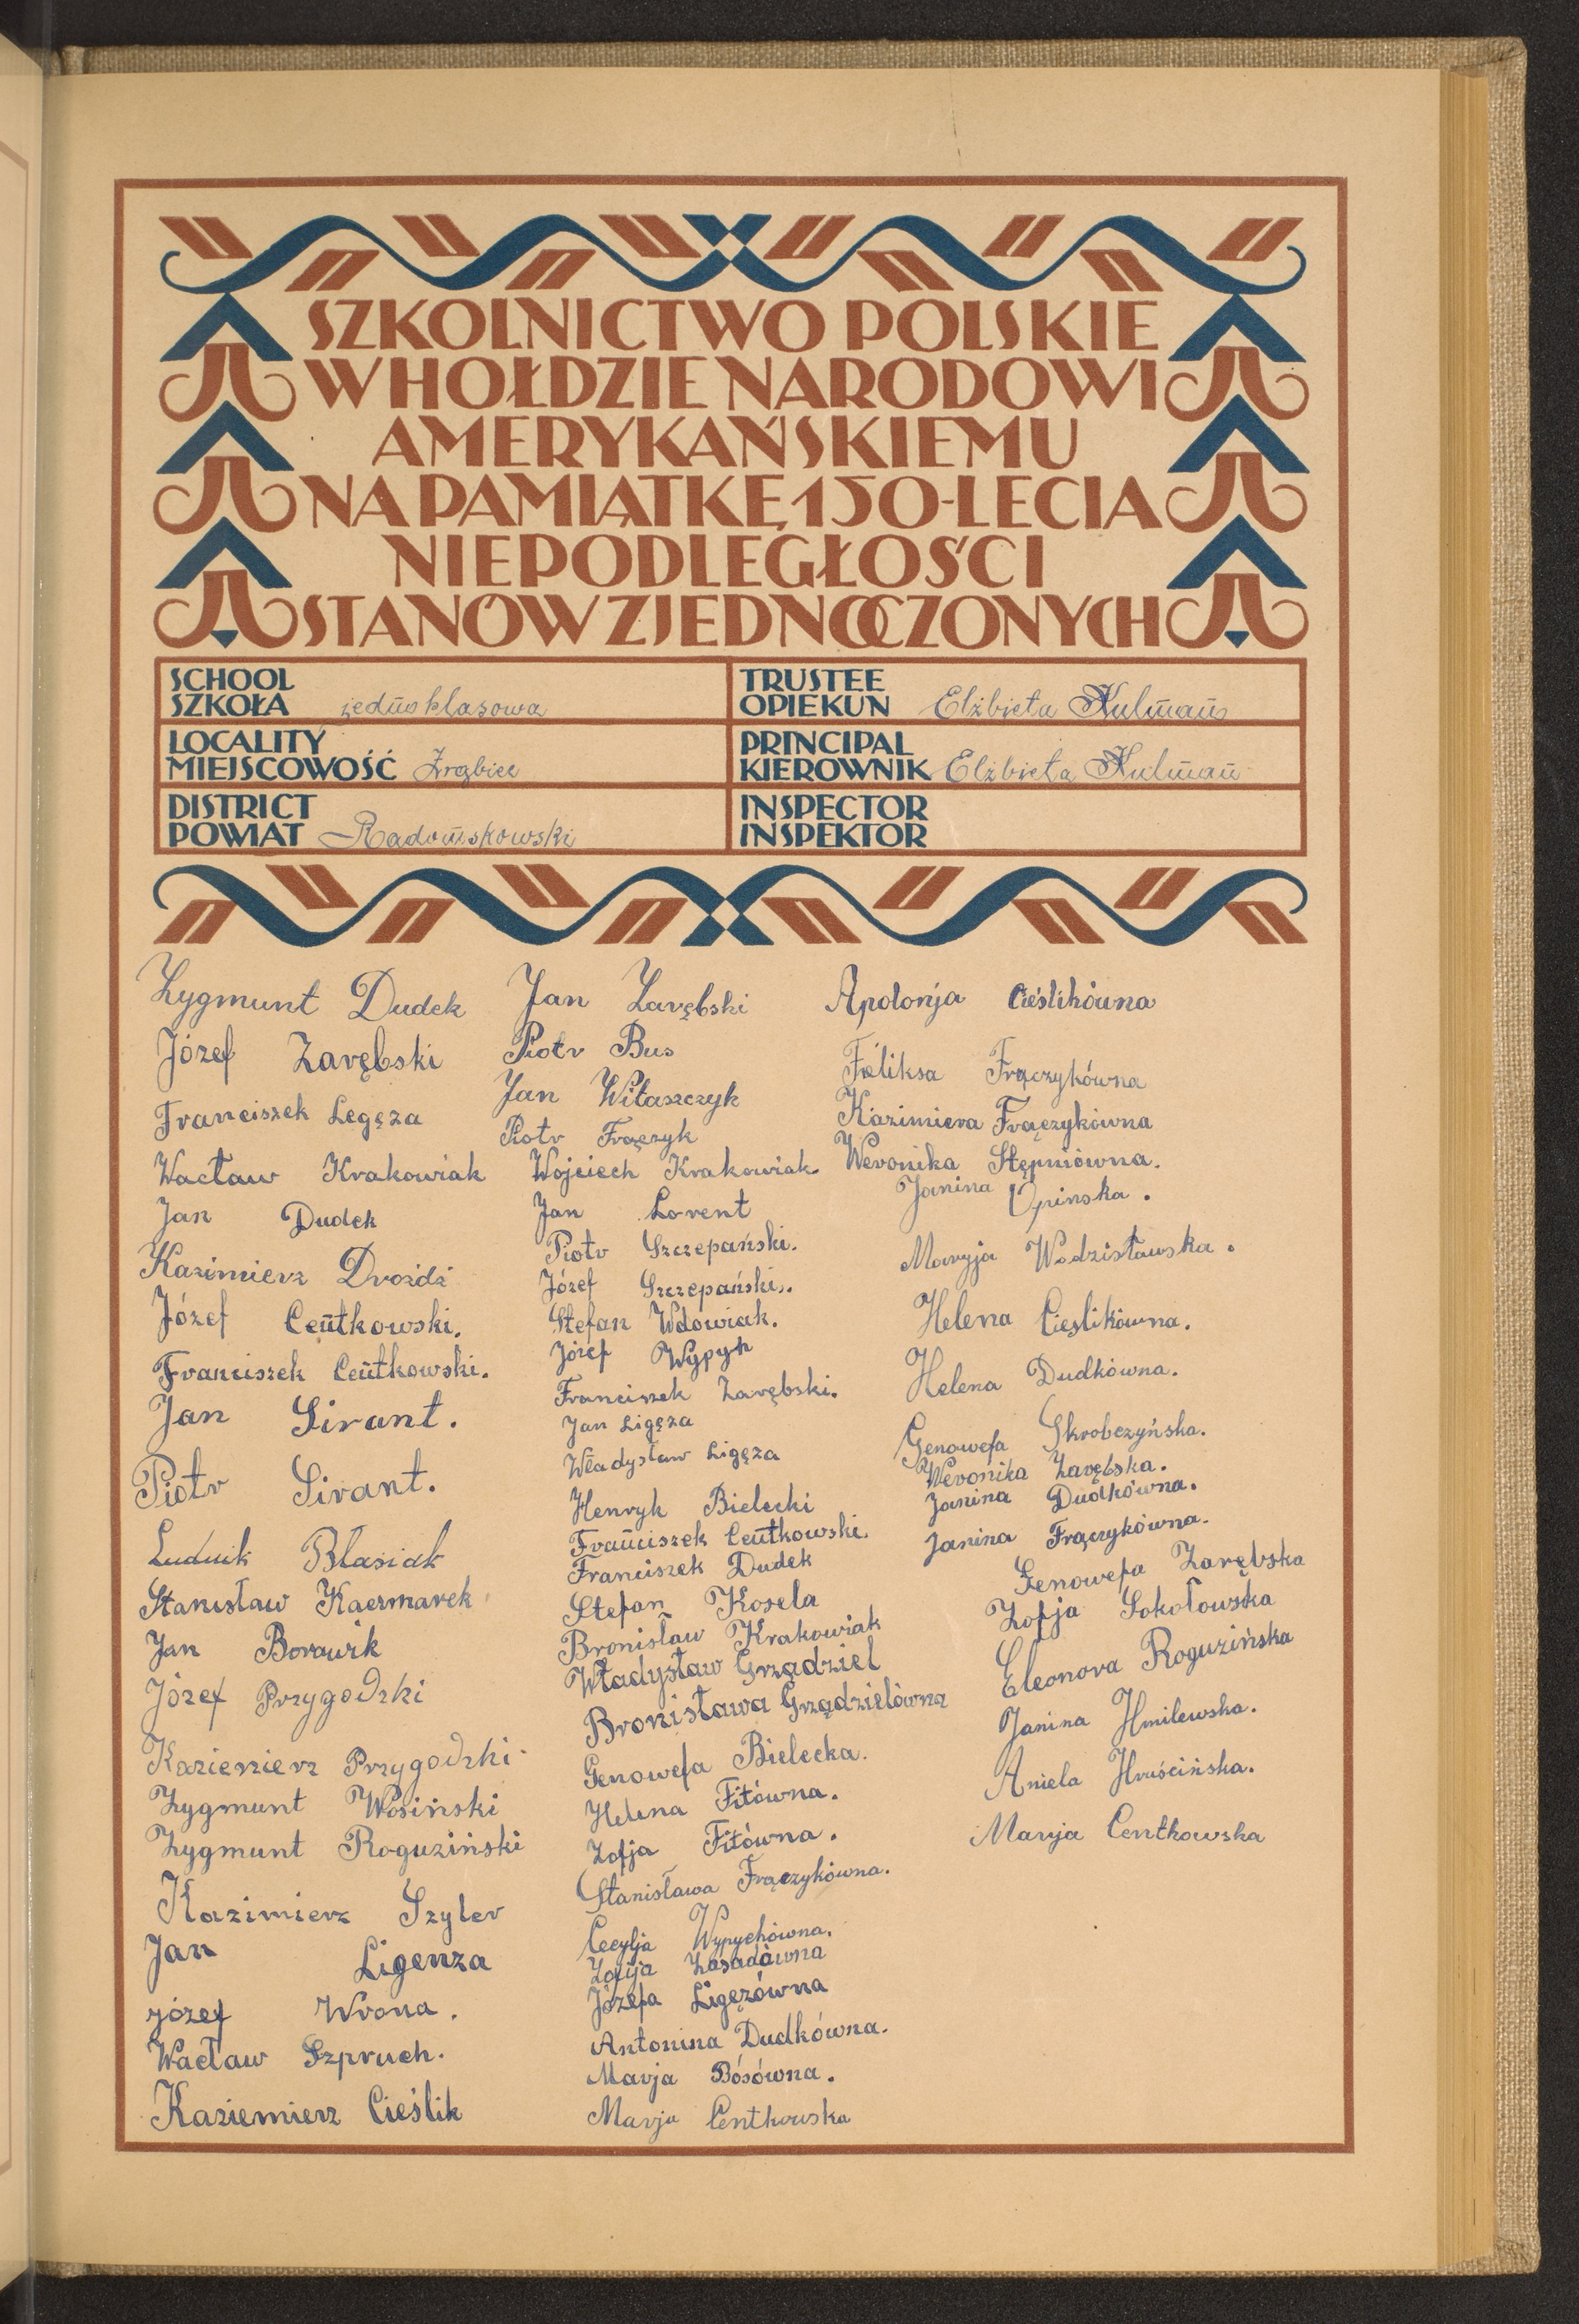 SZKOLNICTWO POLSKIE
W HOŁDZIE NARODOWI
AMERYKAŃSKIEMU
NA PAMIĄTKĘ 150-LECIA
NIEPODLEGŁOŚCI
STANÓW ZJEDNOCZONYCH
SCHOOL
SZKOŁA jednoklasowa
TRUSTEE
OPIEKUN Elżbieta Kulman
LOCALITY
MIEJSCOWOŚĆ Zrąbiec
PRINCIPAL
KIEROWNIK Elżbieta Kulman
DISTRICT
POWIAT Radomskowski
INSPECTOR
INSPEKTOR
Zygmunt Dudek
Józef Zarębski
Franciszek Legęza
Wacław Krakowiak
Jan Dudek
Kazimierz Drożdż
Józef Centkowski.
Franciszek Centkowski.
Jan Sirant.
Piotr Sirant.
Ludwik Blasiak
Stanisław Kaczmarek
Jan Borowik
Józef Przygodzki
Kaziemierz Przygodzki
Zygmunt Wosiński
Zygmunt Roguziński
Kazimierz Szyler
Jan Ligenza
Józef Wrona.
Wacław Szpruch.
Kaziemierz Cieślik
Jan Zarębski
Piotr Bus
Jan Witaszczyk
Piotr Frączyk
Wojciech Krakowiak
Jan Lorent
Piotr Szczepański.
Józef Szczepański.
Stefan Wdowiak.
Józef Wypych
Franciszek Zarębski.
Jan Ligęza
Władysław Ligęza
Henryk Bielecki
Franciszek Centkowski.
Franciszek Dudek
Stefan Kosela
Bronisław Krakowiak
Władysław Grządziel
Bronisława Grządzielówna
Genowefa Bielecka.
Helena Fitówna.
Zofja Fitówna.
Stanisława Frączykówna.
Cecylja Wypychówna.
Zofija Zasadówna
Józefa Ligęzówna
Antonina Dudkówna.
Marja Bósówna.
Marja Centkowska
Apolonja Cieślikówna
Feliksa Frączykówna
Kazimiera Frączykówna
Weronika Stępniówna.
Janina Opinska.
Maryja Wodzisławska.
Helena Cieślikówna.
Helena Dudkówna.
Genowefa Skrobczyńska.
Weronika Zarębska.
Janina Dudkówna.
Janina Frączykówna.
Genowefa Zarębska
Zofja Sokołowska
Eleonora Roguzińska
Janina Hmilewska.
Aniela Hruścińska.
Marja Centkowska